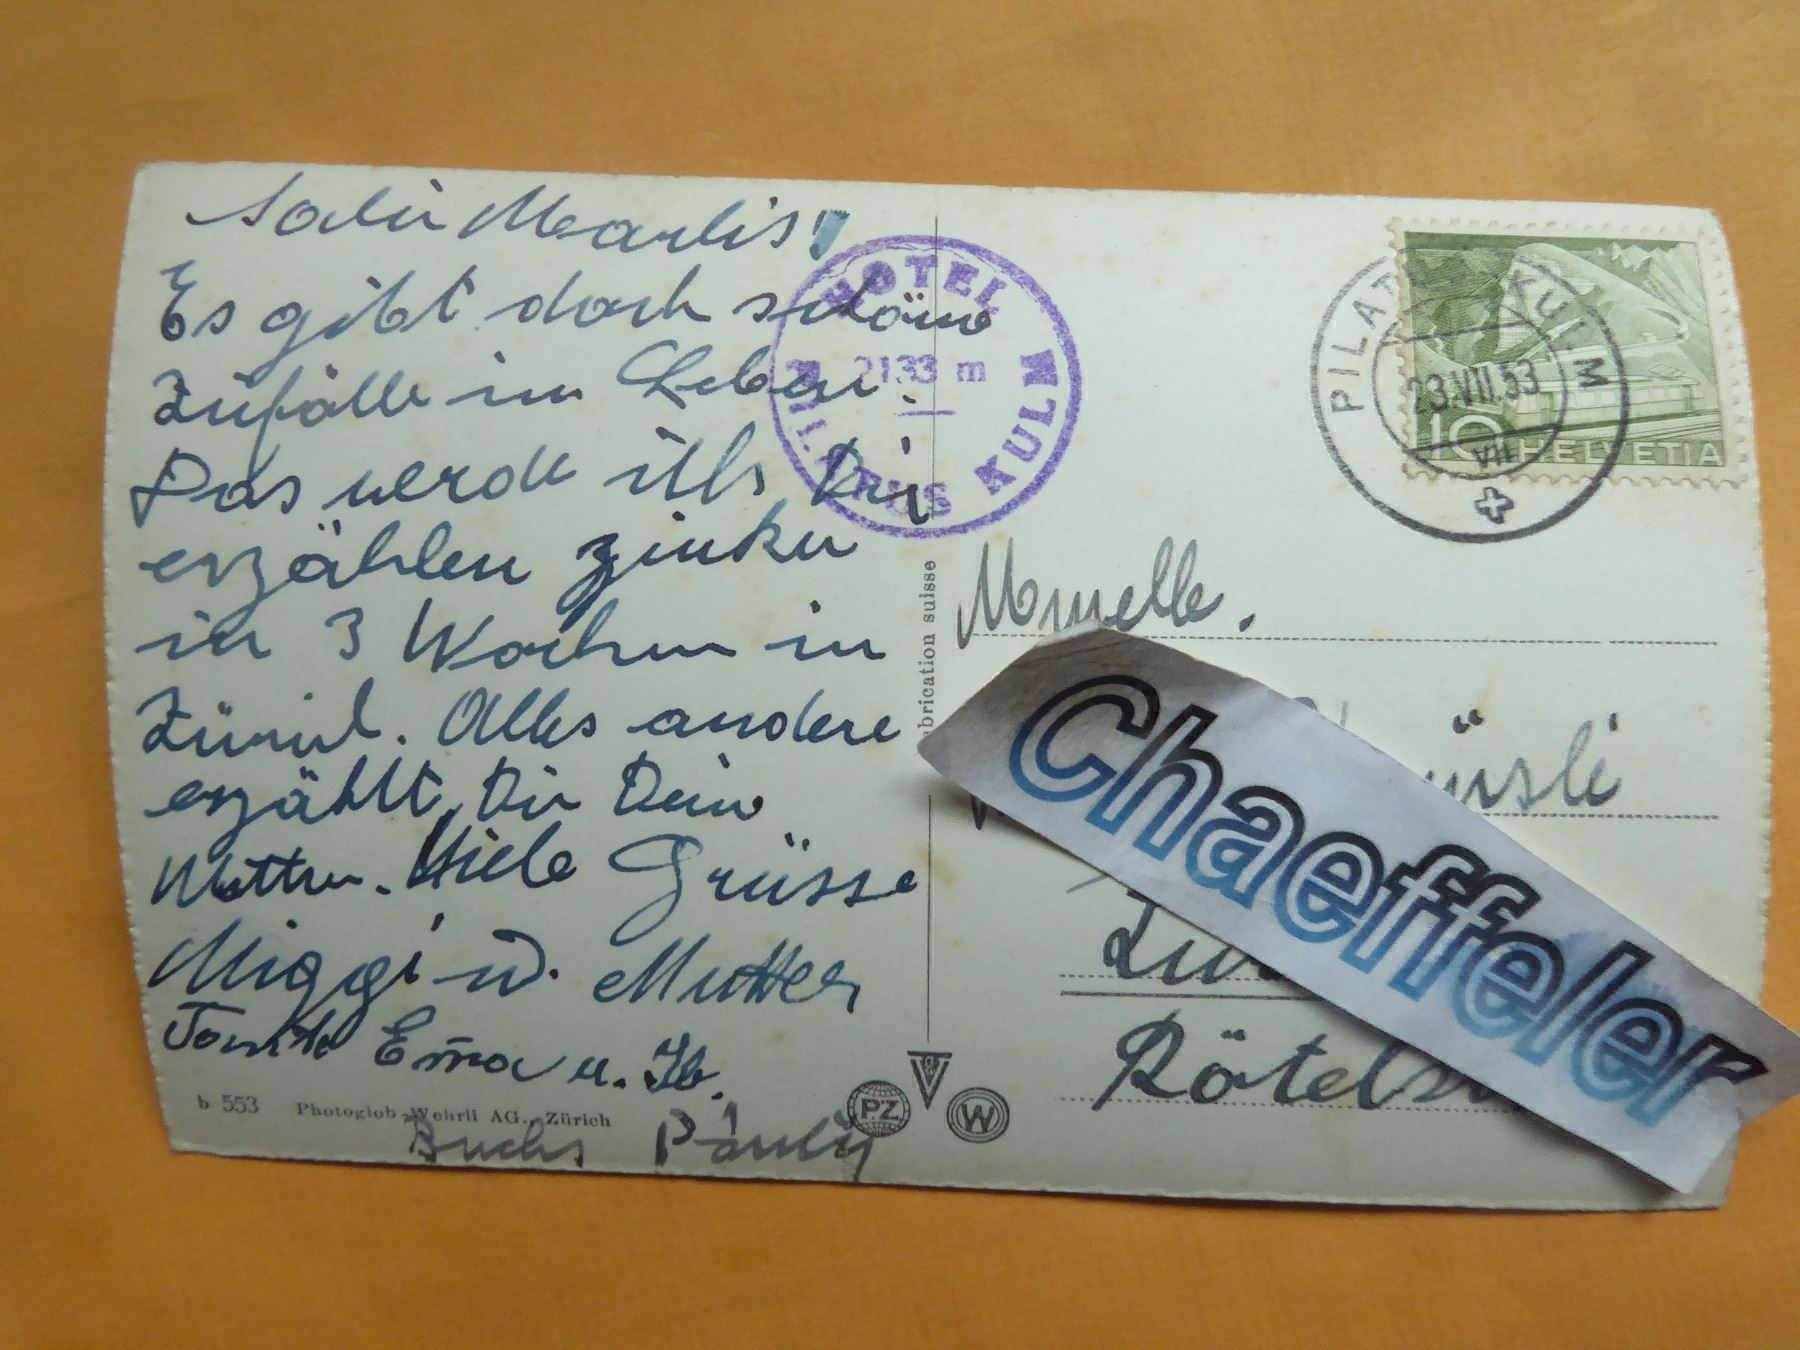 Salü Marlis!
Es gibt doch schöne
Zufälle im Leben.
Das werde ich Dir
erzählen zirka
in 3 Wochen in
Zürich. Alles andere
erzählt Dir Deine
Mutter. Viele Grüsse
Miggi u. Mutter
Tante Emma u.
Buchs Pauly
b 553 Photoglob-Wehrli AG., Zürich
HOTEL
2133 m
PILATUS KULM
brication suisse
PZ
W
PILATUS KULM
23.VII.53
VII
10 HELVETIA
Mmuelle.
Chaeffeler